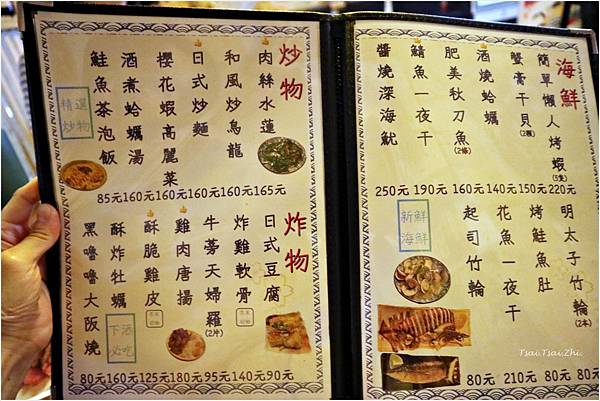 炒物
肉絲水蓮
和風炒烏龍
日式炒麵
櫻花蝦高麗菜
酒煮蛤蠣湯
鮭魚茶泡飯
精選
炒物
85元 160元 160元 160元 160元 165元
炸物
日式豆腐
炸雞軟骨
牛蒡天婦羅(2片)
雞肉唐揚
酥脆雞皮
酥炸牡蠣
黑嚕嚕大阪燒
下酒
必吃
80元 160元 125元 180元 95元 140元 90元
海鮮
簡單懶人烤蝦(5隻)
蟹膏干貝(2顆)
酒燒蛤蠣
肥美秋刀魚(2條)
鯖魚一夜干
醬燒深海魷
250元 190元 160元 140元 150元 220元
新鮮
海鮮
明太子竹輪(2本)
烤鮭魚肚
花魚一夜干
起司竹輪
80元 210元 80元 80
Tsai.Tsai.Zhi.